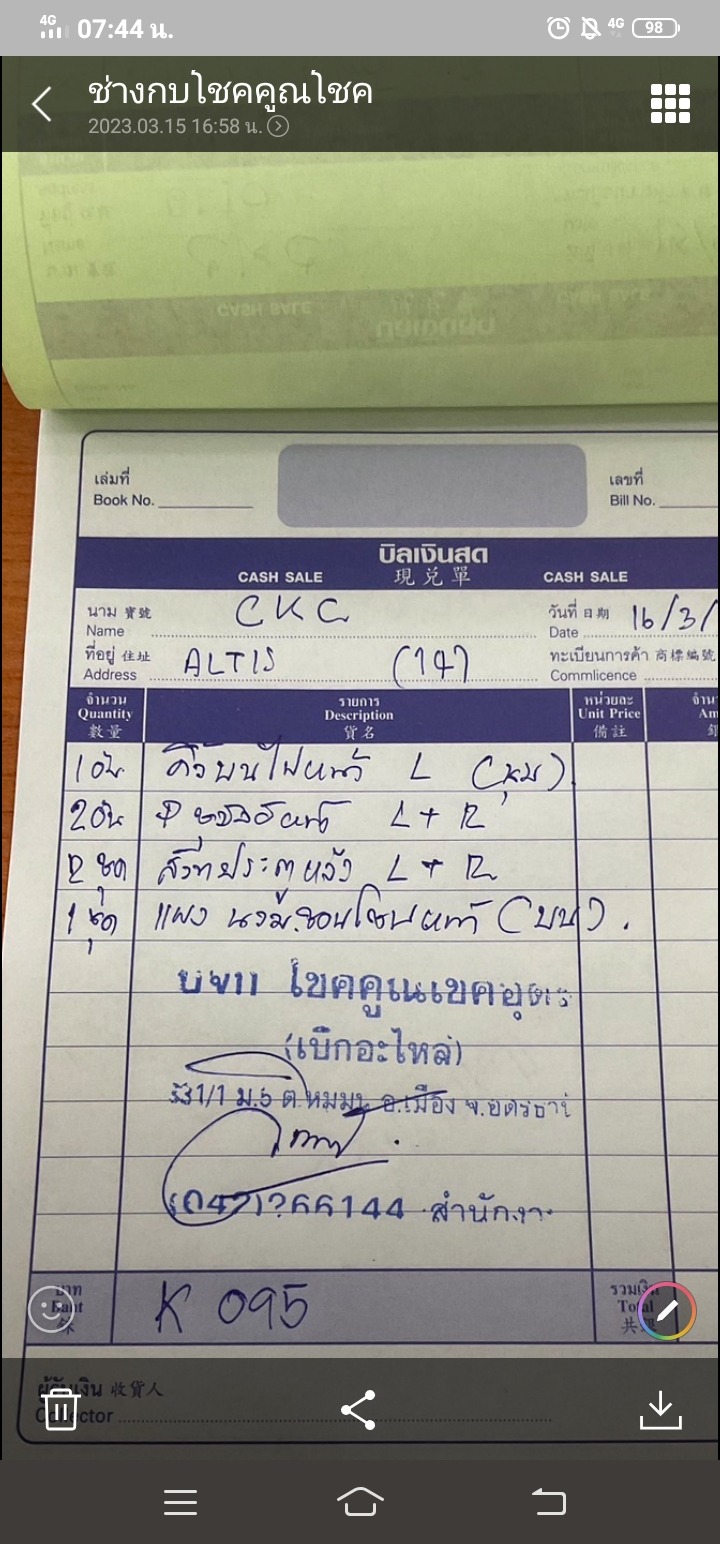 4G 07:44 น. 4G 98
ช่างกบโชคคูณโชค
2023.03.15 16:58 น.
CASH SALE
เล่มที่ เลขที่
Book No. Bill No.
บิลเงินสด
CASH SALE 現兌單 CASH SALE
นาม 寶號 CKC วันที่ 日期 16/3/
Name Date
ที่อยู่ 住址 ALTIS (14) ทะเบียนการค้า 商標編號
Address Commlicence
จำนวน รายการ หน่วยละ จำน
Quantity Description Unit Price Am
數量 貨名 備註
1 อัน คิ้วบนไฟหน้า L (ชุบ)
2 อัน L + R
2 ชุด สวิทประตูหลัง L + R
1 ชุด แผง หน้า (บน).
โชคคูณโชคอุดร
(เบิกอะไหล่)
31/1 ม.5 ต.หมูม่น อ.เมือง จ.อุดรธานี
(042)266144 สำนักงาน
บาท K 095 รวมเงิน
Baht Total
ผู้รับเงิน 收貨人
Collector